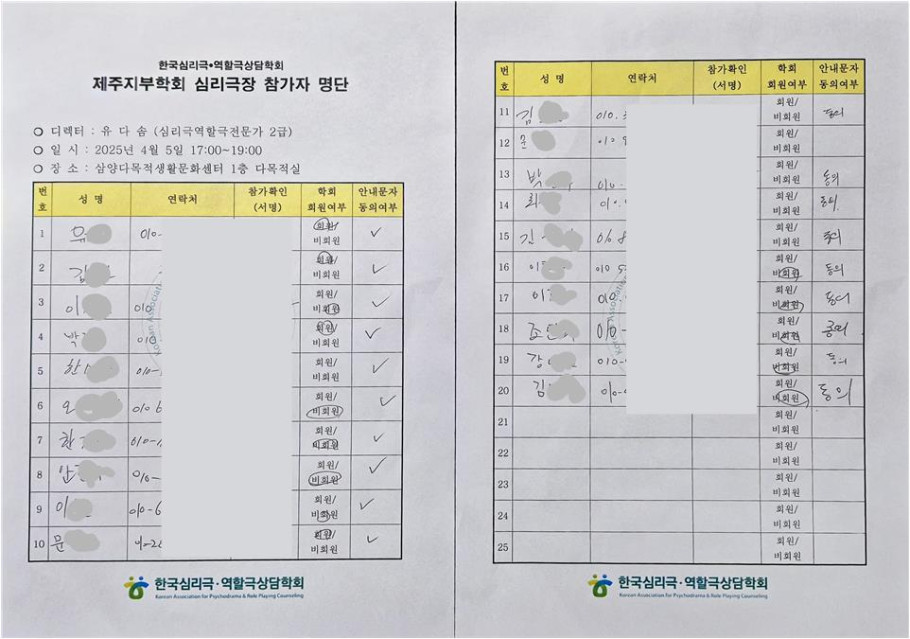 한국심리극•역할극상담학회
제주지부학회 심리극장 참가자 명단
○ 디렉터 : 유 다 솜 (심리극역할극전문가 2급)
○ 일 시 : 2025년 4월 5일 17:00~19:00
○ 장 소 : 삼양다목적생활문화센터 1층 다목적실
번호 성 명 연락처 참가확인 (서명) 학회 회원여부 안내문자 동의여부
1 유 010- 회원/비회원 ✓
2 김 회원/비회원 ✓
3 이 010 회원/비회원 ✓
4 박 010 회원/비회원 ✓
5 한 010- 회원/비회원 ✓
6 오 010 6 회원/비회원 ✓
7 010-1 회원/비회원 ✓
8 안 010- 회원/비회원 ✓
9 이 010-6 회원/비회원 ✓
10 문 회원/비회원 ✓
한국심리극·역할극상담학회
Korean Association for Psychodrama & Role Playing Counseling
번호 성 명 연락처 참가확인 (서명) 학회 회원여부 안내문자 동의여부
11 김 010. 회원/비회원 동의
12 010 회원/비회원
13 박 010 회원/비회원 동의
14 010 회원/비회원 동의
15 김 010 회원/비회원 동의
16 이 010 회원/비회원 동의
17 이 010 회원/비회원 동의
18 조 010- 회원/비회원 동의
19 강 010- 회원/비회원 동의
20 김 010- 회원/비회원 동의
21 회원/비회원
22 회원/비회원
23 회원/비회원
24 회원/비회원
25 회원/비회원
한국심리극·역할극상담학회
Korean Association for Psychodrama & Role Playing Counseling